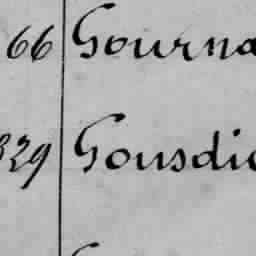 66 Gourna
329 Gousdi